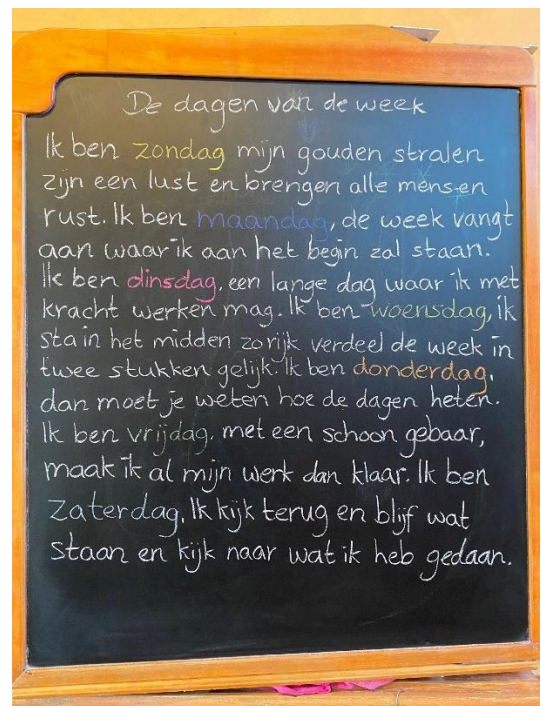 De dagen van de week
Ik ben zondag mijn gouden stralen
zijn een lust en brengen alle mensen
rust. Ik ben maandag, de week vangt
aan waar ik aan het begin zal staan.
Ik ben dinsdag, een lange dag waar ik met
kracht werken mag. Ik ben woensdag, ik
sta in het midden zo rijk verdeel de week in
twee stukken gelijk. Ik ben donderdag,
dan moet je weten hoe de dagen heten.
Ik ben vrijdag, met een schoon gebaar,
maak ik al mijn werk dan klaar. Ik ben
zaterdag. Ik kijk terug en blijf wat
staan en kijk naar wat ik heb gedaan.